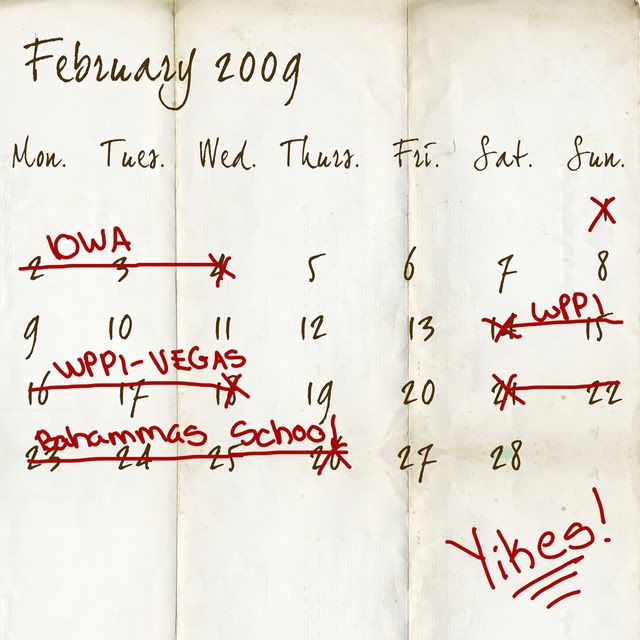 February 2009
Mon. Tues. Wed. Thurs. Fri. Sat. Sun.
1
IOWA
2 3 4 5 6 7 8
WPPI
9 10 11 12 13 14 15
WPPI-VEGAS
16 17 18 19 20 21 22
Bahammas School
23 24 25 26 27 28
Yikes!